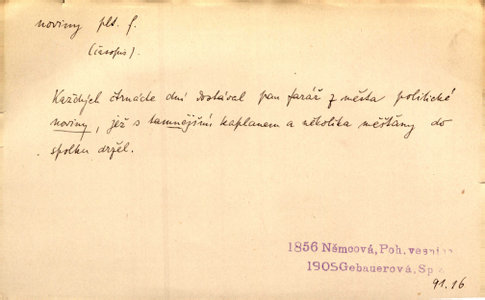 noviny plt. f.
(časopis).
Každých čtrnácte dní dostával pan farář z města politické
noviny, jež s tamnějším kaplanem a několika měšťany do
spolku držel.
1856 Němcová, Poh. vesnice
1905 Gebauerová, Sp 2
91.16